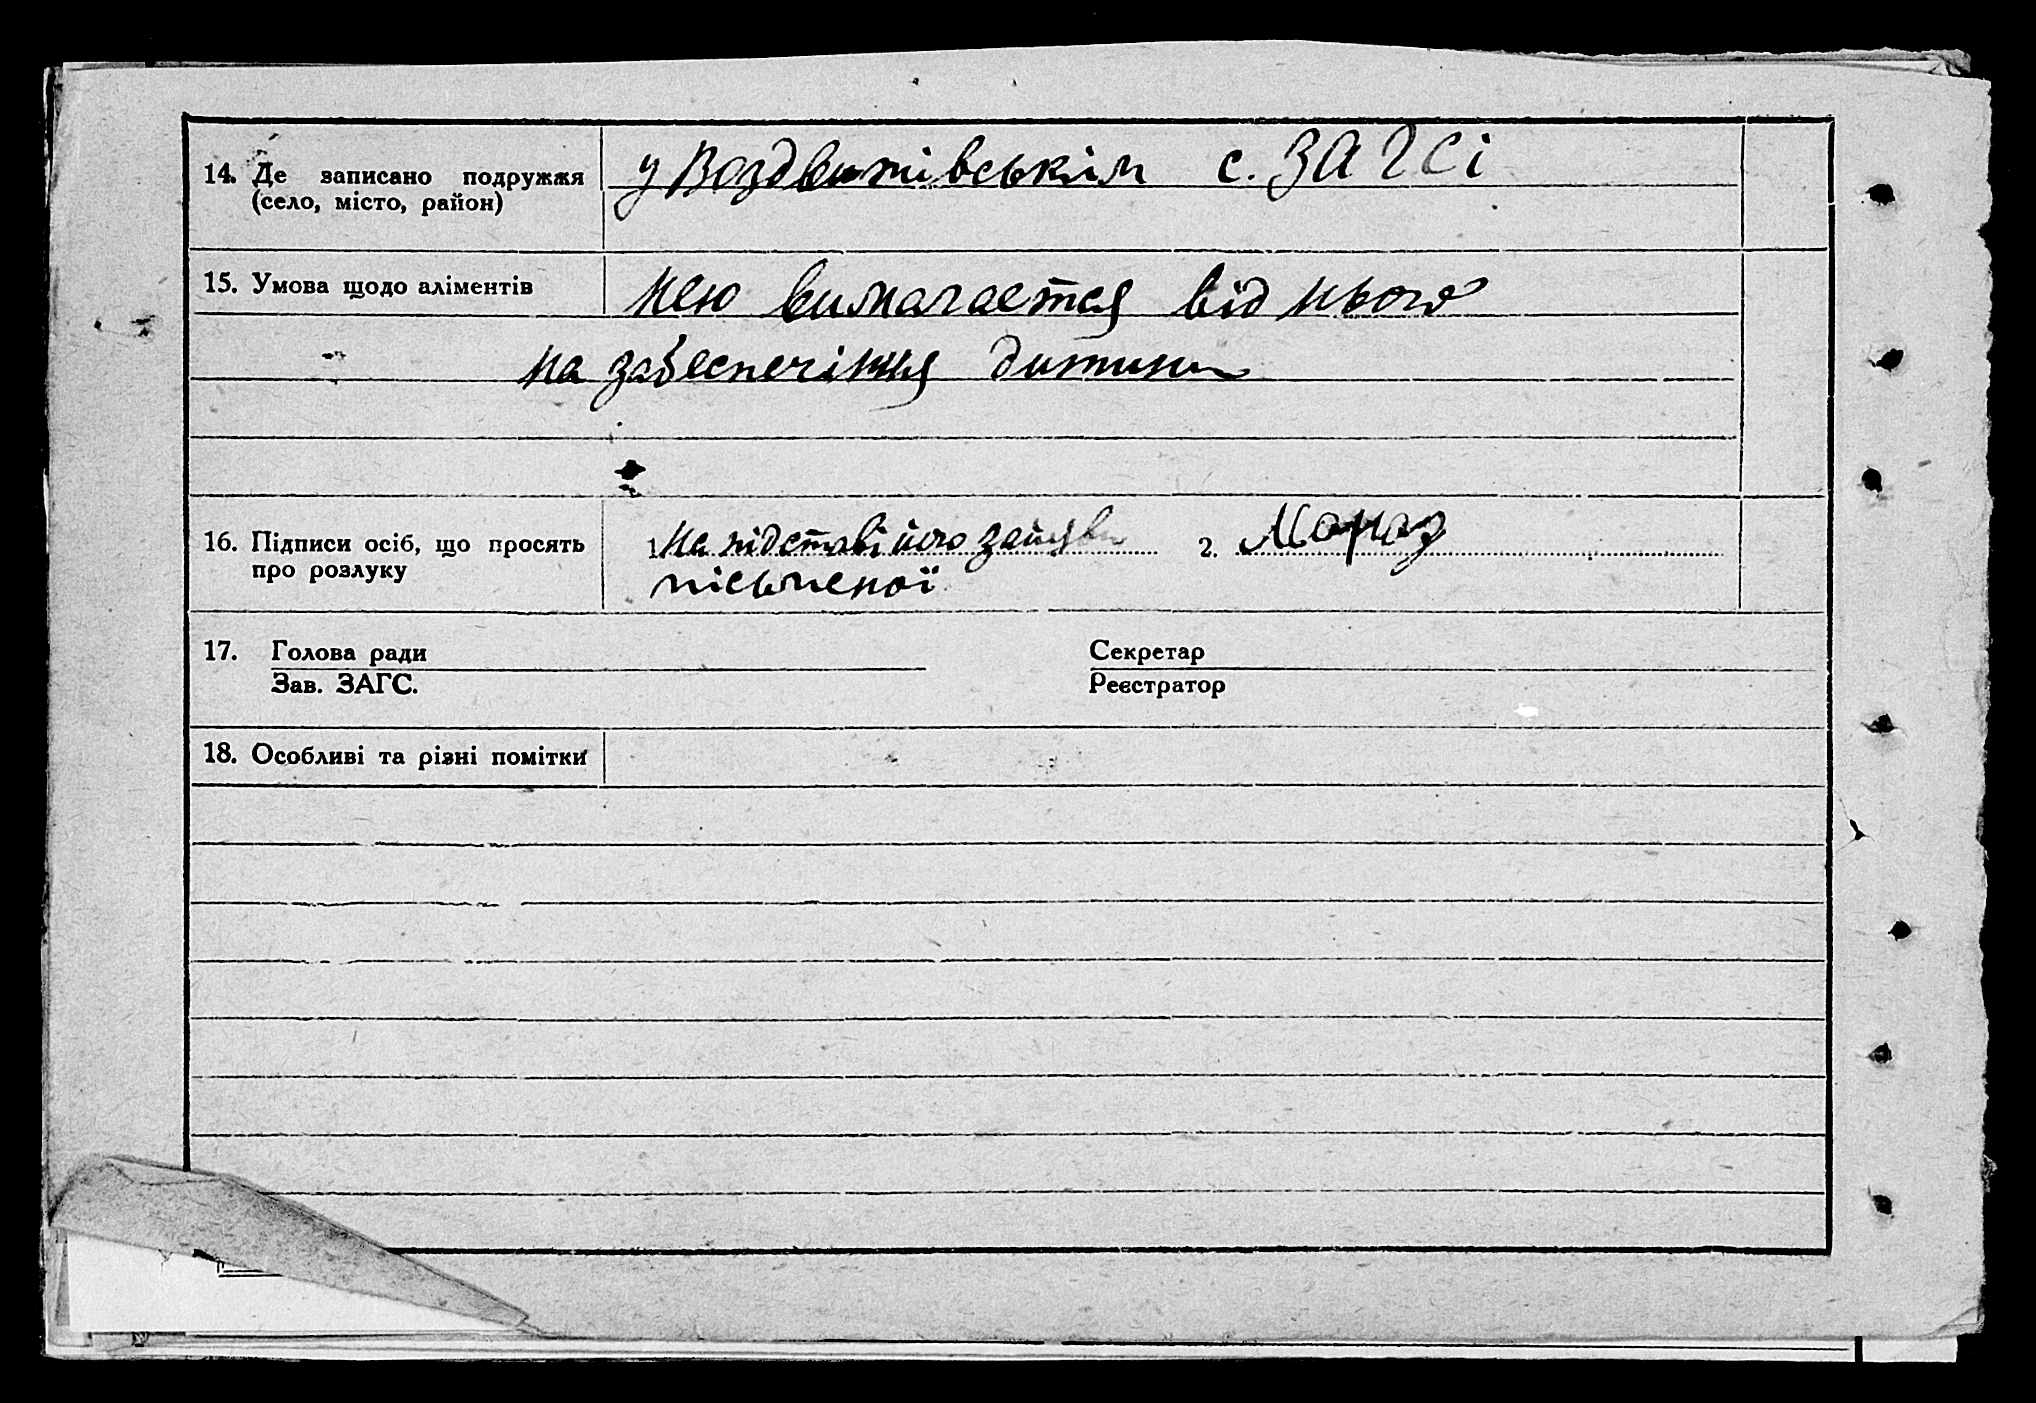 14. Де записано подружжя у Воздвижівським с. ЗАГСі
(село, місто, район)
15. Умова щодо аліментів нею вимагається від нього
на забеспечіння дитини
16. Підписи осіб, що просять 1. На підставі його заяви 2. Мороз
про розлуку письменої
17. Голова ради Секретар
Зав. ЗАГС. Реєстратор
18. Особливі та різні помітки